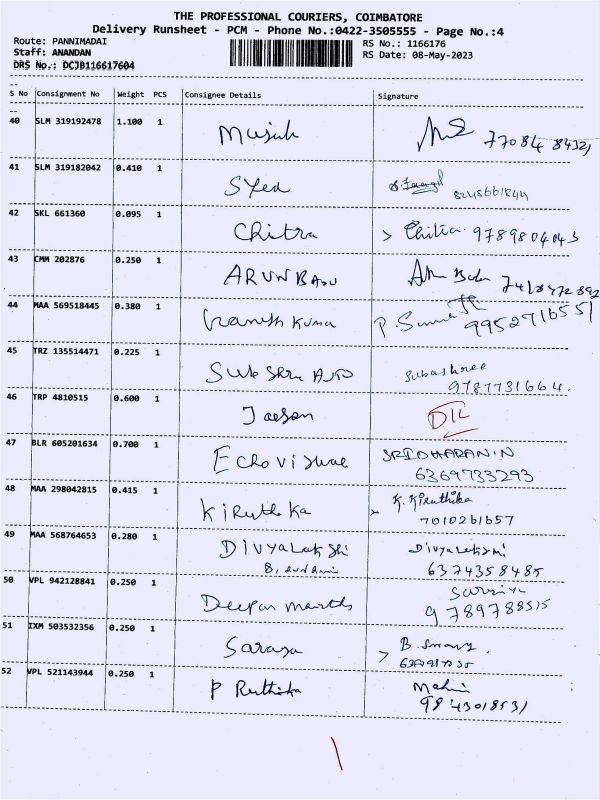 THE PROFESSIONAL COURIERS, COIMBATORE
Delivery Runsheet - PCM - Phone No.:0422-3505555 - Page No.:4
Route: PANNIMADAI
Staff: ANANDAN
DRS No.: DCJB116617604
RS No.: 1166176
RS Date: 08-May-2023
S No Consignment No Weight PCS Consignee Details Signature
40 SLM 319192478 1.100 1
41 SLM 319182042 0.410 1 Syed
42 SKL 661360 0.095 1 Chitra Chitra 9789804043
43 CMM 202876 0.250 1 ARUN BABU
44 MAA 569518445 0.380 1 Kumar 9952716551
45 TRZ 135514471 0.225 1 Auto Subashree
9787731664.
46 TRP 4810515 0.600 1 Jaeson
47 BLR 605201634 0.700 1 SRIDHARAN.N
6369733293
48 MAA 298042815 0.415 1 Kiruthika K. Kiruthika
7010261657
49 MAA 568764653 0.280 1 Divyalakshi
6374358485
50 VPL 942128841 0.250 1
9789788515
51 IXM 503532356 0.250 1
52 VPL 521143944 0.250 1 P Ruthika